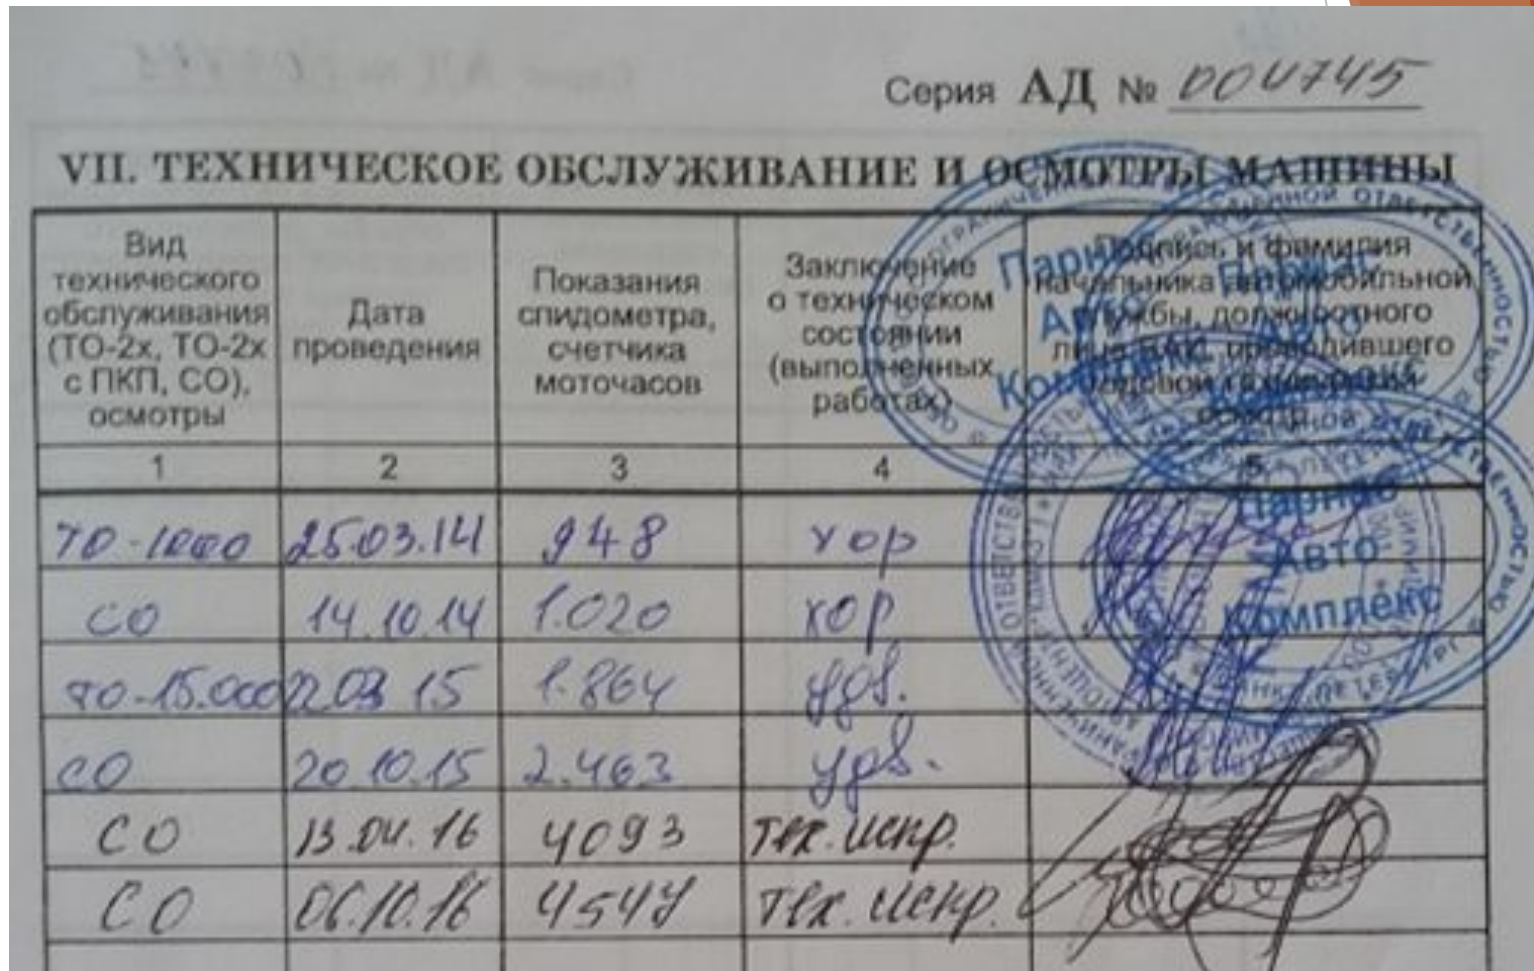 Серия АД № 004745
VII. ТЕХНИЧЕСКОЕ ОБСЛУЖИВАНИЕ И ОСМОТРЫ МАШИНЫ
Вид
технического
обслуживания
(ТО-2х, ТО-2х
с ПКП, СО),
осмотры
Дата
проведения
Показания
спидометра,
счетчика
моточасов
Заключение
о техническом
состоянии
(выполненных
работах)
Подпись и фамилия
начальника автомобильной
службы, должностного
лица ВАИ, проводившего
годовой технический
осмотр
1 2 3 4 5
ТО-1000 25.03.14 948 хор
СО 14.10.14 1.020 хор
ТО-15.000 22.03 15 1.864 удв.
СО 20.10.15 2.463 удв.
СО 13.04.16 4093 тех.испр.
СО 06.10.16 4547 тех.испр.
Парнас
Авто
Комплекс
Парнас
Авто
Комплекс
Парнас
Авто
Комплекс